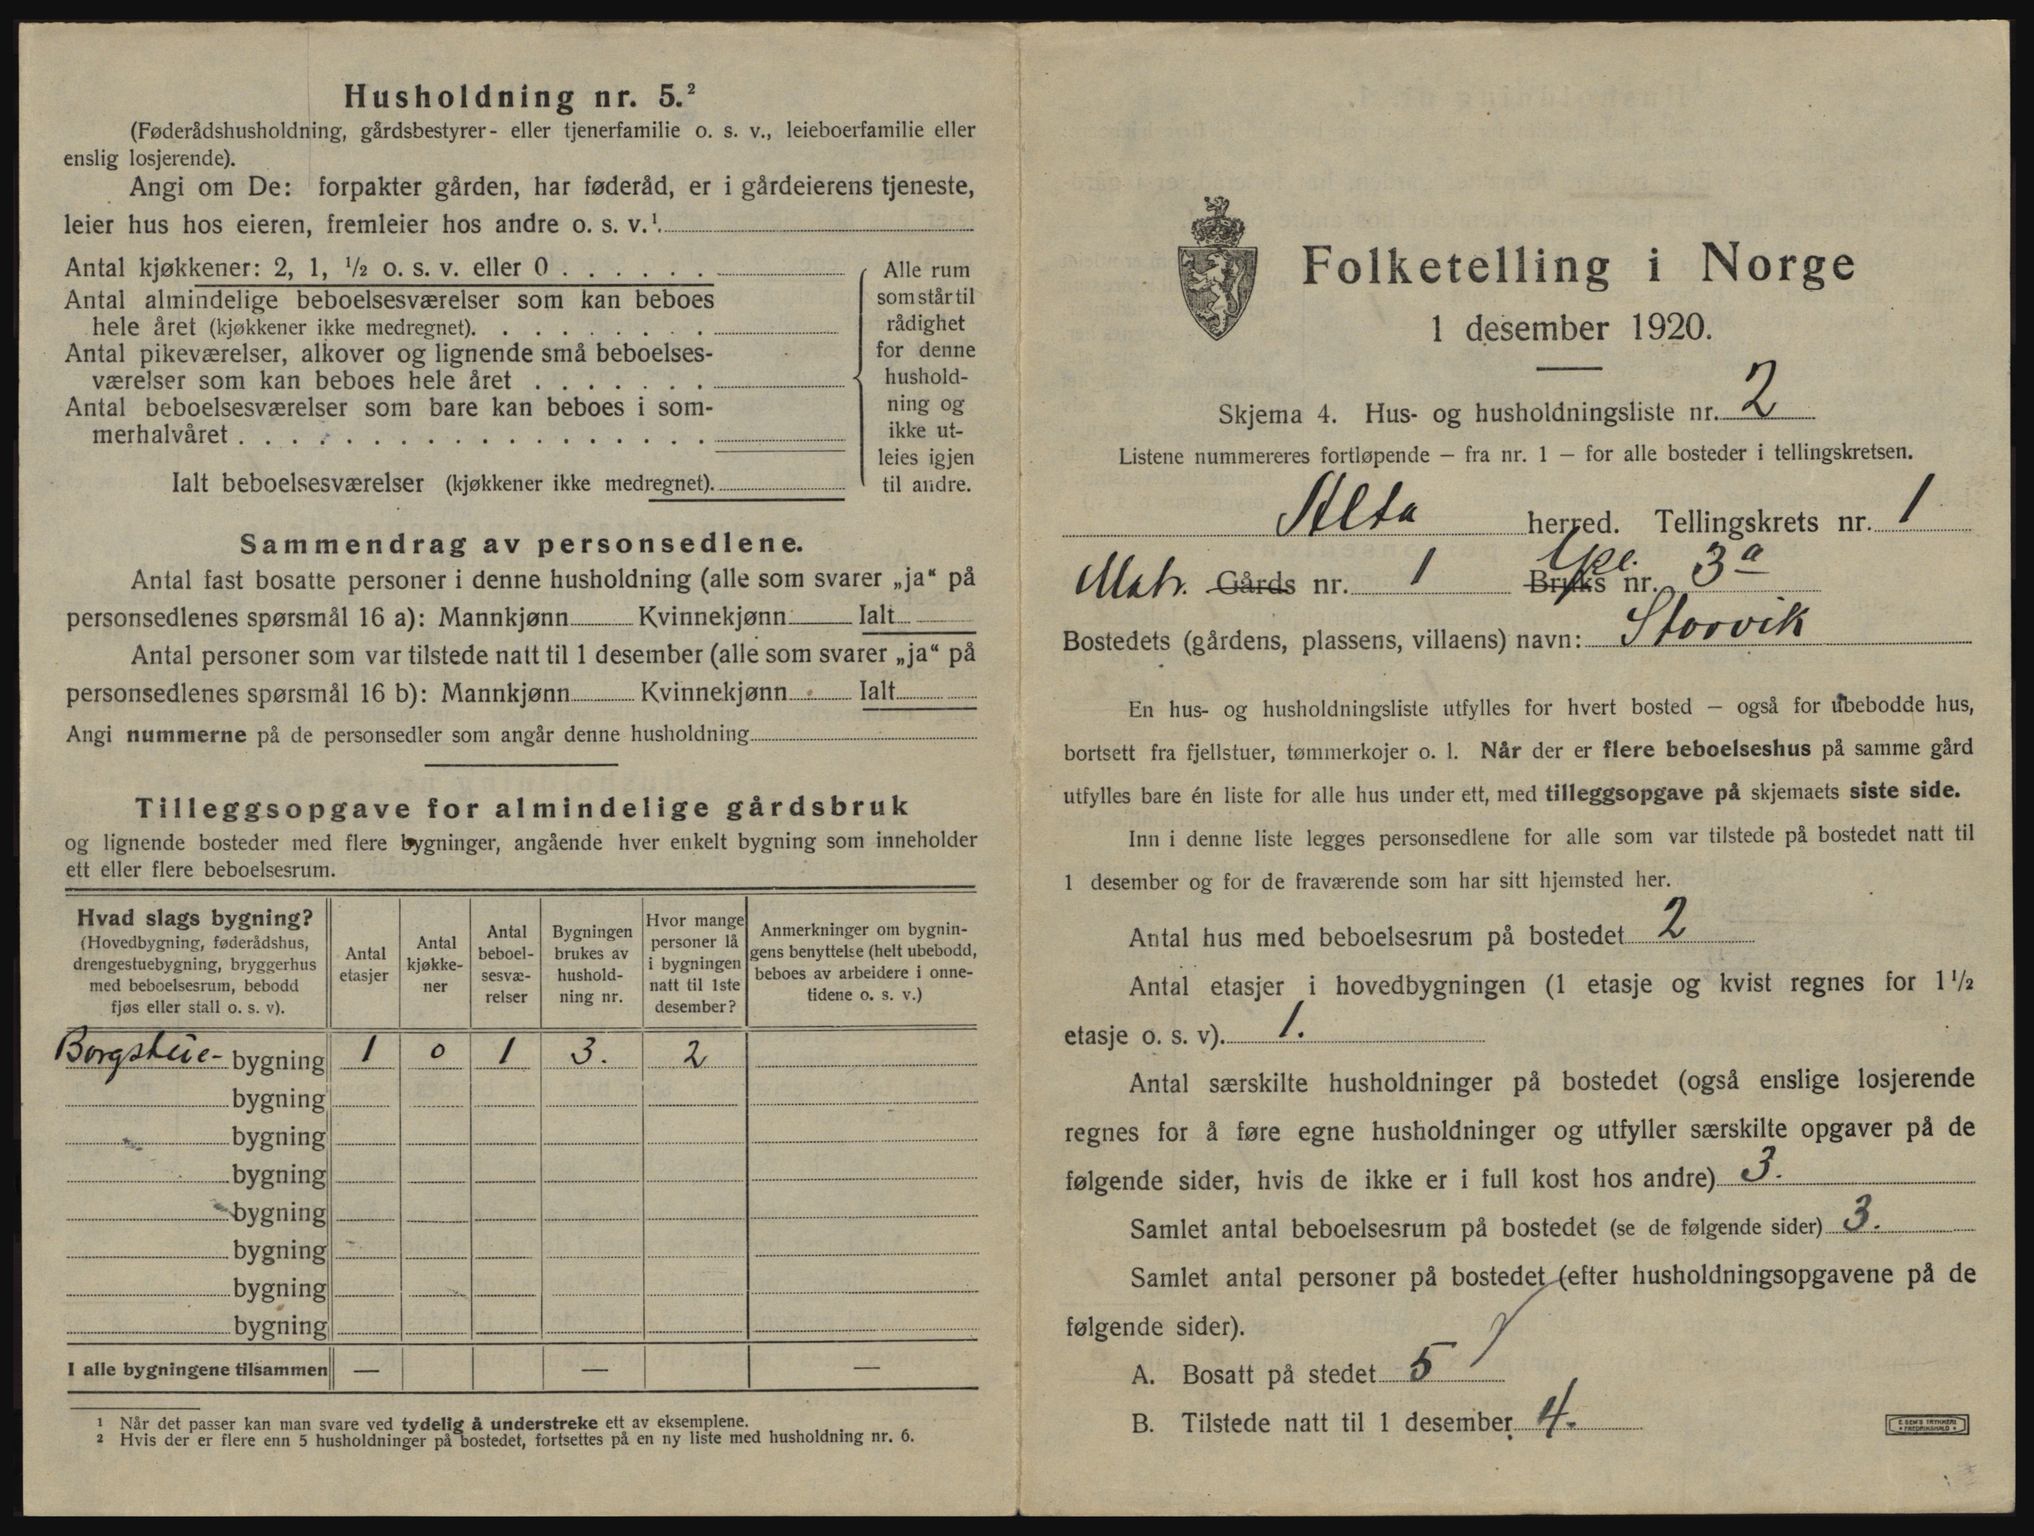 Husholdning nr. 5.²
(Føderådshusholdning, gårdsbestyrer- eller tjenerfamilie o. s. v., leieboerfamilie eller
enslig losjerende).
Angi om De: forpakter gården, har føderåd, er i gårdeierens tjeneste,
leier hus hos eieren, fremleier hos andre o. s. v.¹
Antal kjøkkener: 2, 1, ½ o. s. v. eller 0 . . . . . .
Antal almindelige beboelsesværelser som kan beboes
hele året (kjøkkener ikke medregnet). . . . . . . . .
Antal pikeværelser, alkover og lignende små beboelses-
værelser som kan beboes hele året . . . . . . .
Antal beboelsesværelser som bare kan beboes i som-
merhalvåret . . . . . . . . . . . . . . . . . .
Ialt beboelsesværelser (kjøkkener ikke medregnet).
Alle rum
som står til
rådighet
for denne
hushold-
ning og
ikke ut-
leies igjen
til andre.
Sammendrag av personsedlene.
Antal fast bosatte personer i denne husholdning (alle som svarer „ja“ på
personsedlenes spørsmål 16 a): Mannkjønn Kvinnekjønn Ialt
Antal personer som var tilstede natt til 1 desember (alle som svarer „ja“ på
personsedlenes spørsmål 16 b): Mannkjønn Kvinnekjønn Ialt
Angi nummerne på de personsedler som angår denne husholdning
Tilleggsopgave for almindelige gårdsbruk
og lignende bosteder med flere bygninger, angående hver enkelt bygning som inneholder
ett eller flere beboelsesrum.
Hvad slags bygning?
(Hovedbygning, føderådshus,
drengestuebygning, bryggerhus
med beboelsesrum, bebodd
fjøs eller stall o. s. v).
Antal
etasjer
Antal
kjøkke-
ner
Antal
beboel-
sesvæ-
relser
Bygningen
brukes av
hushold-
ning nr.
Hvor mange
personer lå
i bygningen
natt til 1ste
desember?
Anmerkninger om bygnin-
gens benyttelse (helt ubebodd,
beboes av arbeidere i onne-
tidene o. s. v.)
Borgstue- bygning 1 0 1 3. 2
bygning
bygning
bygning
bygning
bygning
bygning
bygning
I alle bygningene tilsammen — — —
¹ Når det passer kan man svare ved tydelig å understreke ett av eksemplene.
² Hvis der er flere enn 5 husholdninger på bostedet, fortsettes på en ny liste med husholdning nr. 6.
Folketelling i Norge
1 desember 1920.
Skjema 4. Hus- og husholdningsliste nr. 2
Listene nummereres fortløpende – fra nr. 1 – for alle bosteder i tellingskretsen.
Alta herred. Tellingskrets nr. 1
Matr. Gårds nr. 1 Bruks nr. 3a
Bostedets (gårdens, plassens, villaens) navn: Storvik
En hus- og husholdningsliste utfylles for hvert bosted – også for ubebodde hus,
bortsett fra fjellstuer, tømmerkojer o. l. Når der er flere beboelseshus på samme gård
utfylles bare én liste for alle hus under ett, med tilleggsopgave på skjemaets siste side.
Inn i denne liste legges personsedlene for alle som var tilstede på bostedet natt til
1 desember og for de fraværende som har sitt hjemsted her.
Antal hus med beboelsesrum på bostedet 2
Antal etasjer i hovedbygningen (1 etasje og kvist regnes for 1½
etasje o. s. v). 1.
Antal særskilte husholdninger på bostedet (også enslige losjerende
regnes for å føre egne husholdninger og utfyller særskilte opgaver på de
følgende sider, hvis de ikke er i full kost hos andre) 3.
Samlet antal beboelsesrum på bostedet (se de følgende sider) 3.
Samlet antal personer på bostedet (efter husholdningsopgavene på de
følgende sider).
A. Bosatt på stedet 5
B. Tilstede natt til 1 desember 4.